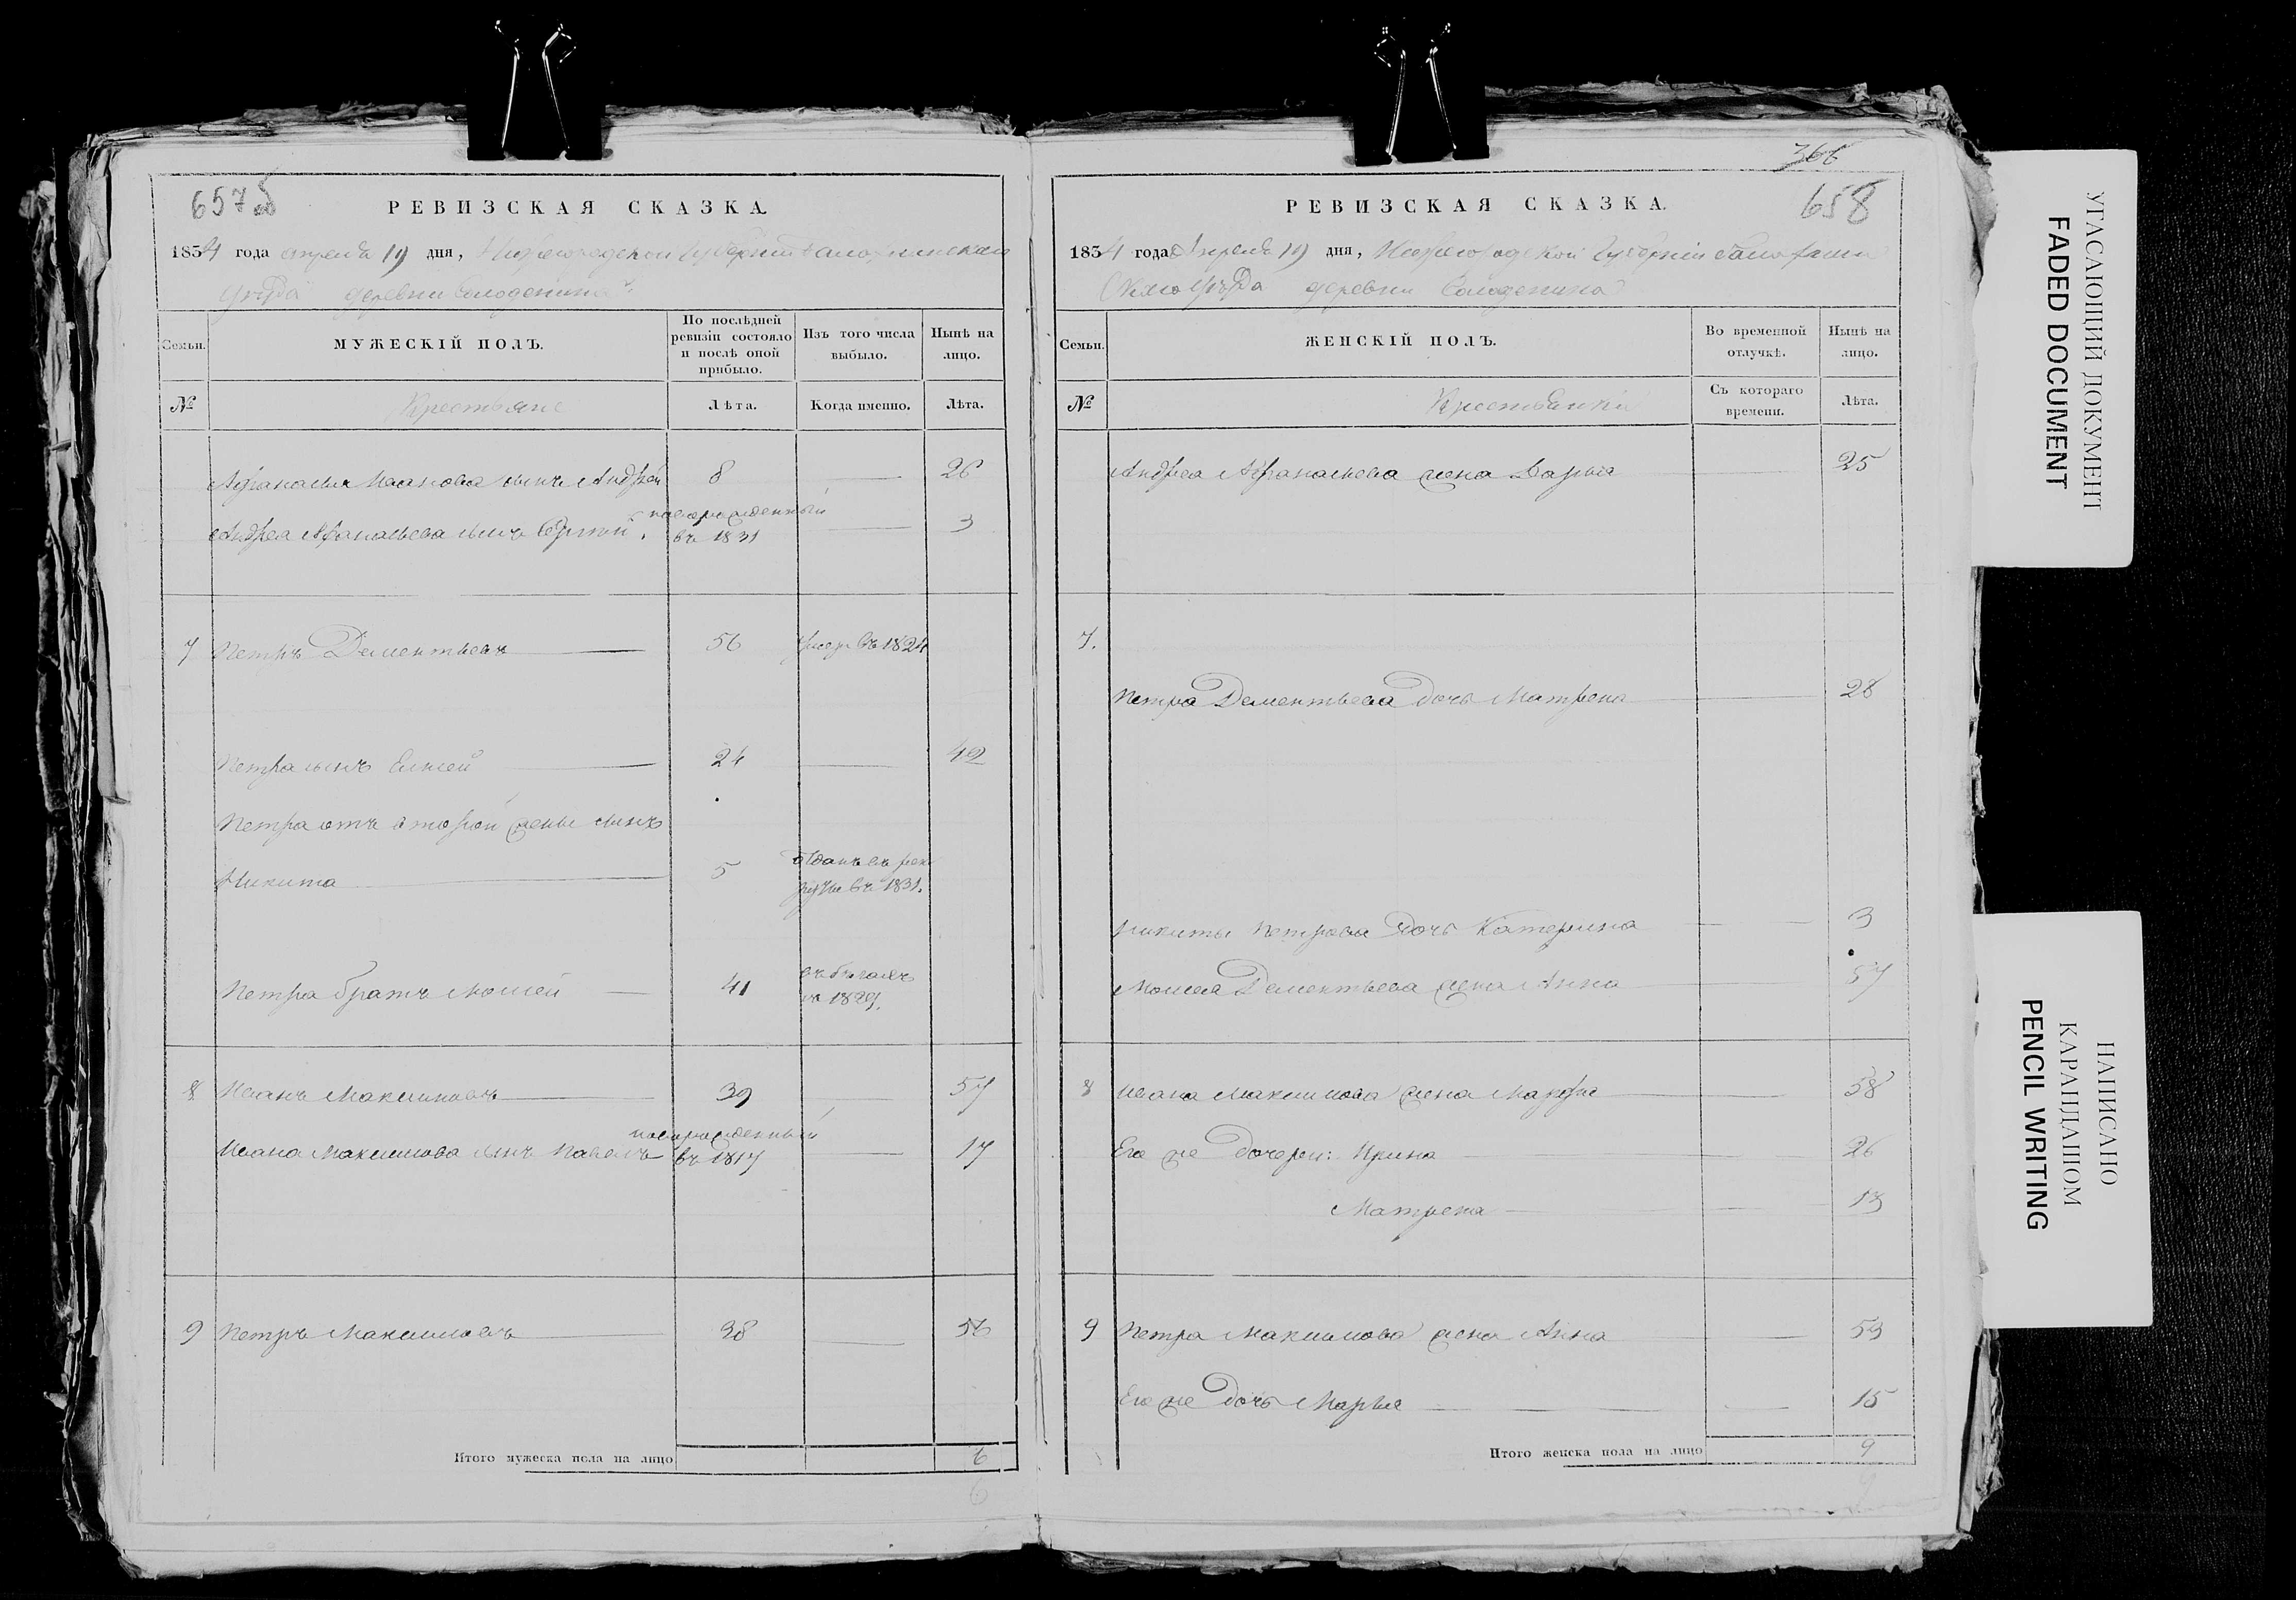 657 об
РЕВИЗСКАЯ СКАЗКА.
1834 года апреля 19 дня, Нижегородской Губернии Балахнинскаго
уезда деревни
Семьи.
МУЖЕСКІЙ ПОЛЪ.
По послѣдней ревизіи состояло и послѣ оной прибыло.
Изъ того числа выбыло.
Нынѣ на лицо.
№
Крестьяне
Лѣта.
Когда именно.
Лѣта.
Афанасья Иванова сынъ Андрей 8 26
Андрея Афанасьева сынъ Сергей новорожденный въ 1831 3
7 Петръ Дементьевъ 56 умеръ въ 1824
Петра сынъ Елисей 24 42
Петра отъ второй жены сынъ
Никита 5 отданъ въ рекруты въ 1831.
Петра братъ Моисей 41 въ бегахъ 1829.
8 Иванъ Максимовъ 39 57
Ивана Максимова сынъ Павелъ новорожденный въ 1817 17
9 Петръ Максимовъ 38 56
Итого мужеска пола на лицо 6
6
366
658
РЕВИЗСКАЯ СКАЗКА.
1834 года Апреля 19 дня, Нижегородской Губернии Балахнин
скаго уезда деревни
Семьи.
ЖЕНСКІЙ ПОЛЪ.
Во временной отлучкѣ.
Нынѣ на лицо.
№
Крестьянки
Съ котораго времени.
Лѣта.
Андрея Афанасьева жена Дарья 25
7.
Петра Дементьева дочь Матрена 28
Никиты Петрова дочь Катерина 3
Моисея Дементьева жена Анна 57
8 Ивана Максимова жена Марфа 58
Его же дочери: Ирина 26
Матрена 13
9 Петра Максимова жена Анна 53
Его же дочь Марья 15
Итого женска пола на лицо 9
УГАСАЮЩИЙ ДОКУМЕНТ
FADED DOCUMENT
НАПИСАНО
КАРАНДАШОМ
PENCIL WRITING